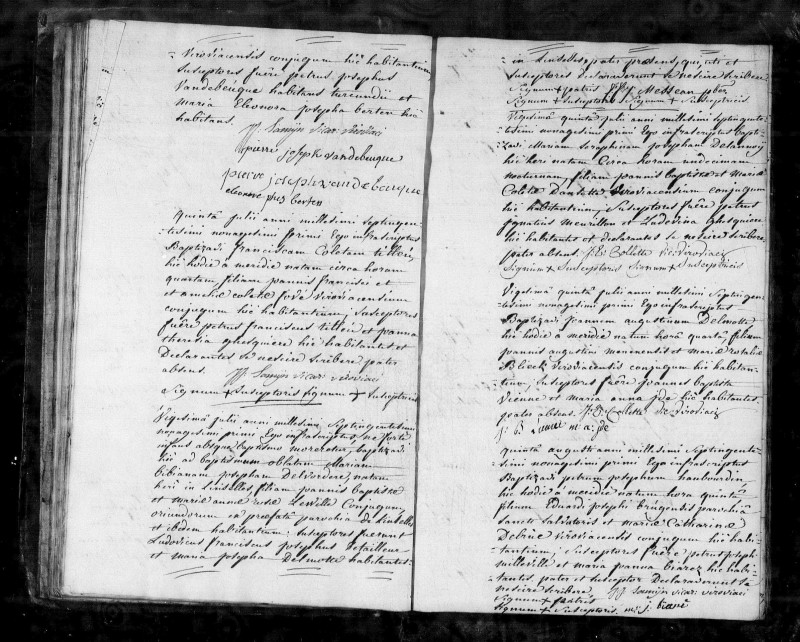 Viroviacensis conjugum hic habitantium
Susceptores fuere petrus josephus
Vandebeuque habitans turcundii et
maria Eleonora josepha berten hic
habitans.
Samijn vicar. viroviaci
pierre joseph vandebeuque
pierre joseph vandebeuque
eleonore berten
Quinta julii anni millesimi septingen-
-tesimi nonagesimi primi Ego infrascriptus
Baptizavi franciscam Colatam
hic hodie a meridie natam circa horam
quartam filiam joannis francisci et
et amelie colete jové viroviacensium
conjugum hic habitantium; Susceptores
fuere petrus franciscus et joanna
theresia ghesquiere hic habitantes et
Declarantes se nescire scribere pater
absens. Samijn vicar. viroviaci
Signum + Susceptoris Signum + Susceptricis
Vigesima julii anni millesimi Septingentesimi
nonagesimi primi Ego infrascriptus ne forte
infans absque baptismo moreretur, baptizavi
hic ad baptismum oblatam Mariam
bibianam josepham Delvordere, natam
heri in linselles filiam joannis baptiste
et marie anne rose conjugum
oriundorum ex praefata parochia de linselles
et ibidem habitantium: Susceptores fuerunt
Ludovicus franciscus josephus
et maria josepha Delmotte habitantes
in linselles, pater praesens, qui, uti et
Susceptores declaraverunt se nescire scribere
Signum + patris
Signum + Susceptoris Signum + Susceptricis
Vigesima quinta julii anni millesimi septingente-
-tesimi nonagesimi primi Ego infrascriptus bapti-
zavi Mariam Seraphinam josepham Delannoy
hic heri natam Circa horam undecimam
nocturnam, filiam joannis baptiste et marie
Colete viroviacensium conjugum
hic habitantium, Susceptores fuere petrus
ignatius meurillon et Ludovica Ghesquiere
hic habitantes et declarantes se nescire scribere
pater absens. Collette vic. viroviaci
Signum + Susceptoris Signum + Susceptricis
Vigesima quinta julii anni millesimi Septingen-
-tesimi nonagesimi primi Ego infrascriptus
Baptizavi joannem augustinum Delmotte
hic hodie a meridie natum hora quarta, filium
joannis augustini et marie rosalie
Bleeck viroviacensis conjugum hic habitan-
-tium, Susceptores fuere joannes baptista
Vienne et maria anna jde hic habitantes
pater absens. Collette vic. viroviaci
j. B. m: a: jde
quinta augusti anni millesimi Septingente-
-simi nonagesimi primi Ego infrascriptus
Baptizavi petrum josephum haubourdin,
hic hodie a meridie natum hora quinta,
filium Eduardi josephi brugensis parochiae
Sancti Salvatoris et marie Catharine
Debrie viroviacensis conjugum hic habi-
-tantium; Susceptores fuere petrus joseph
milleville et maria joanna hic habi-
-tantes, pater et Susceptor Declaraverunt se
nescire scribere Samijn vicar. viroviaci
Signum + patris
Signum + Susceptoris. m: j: